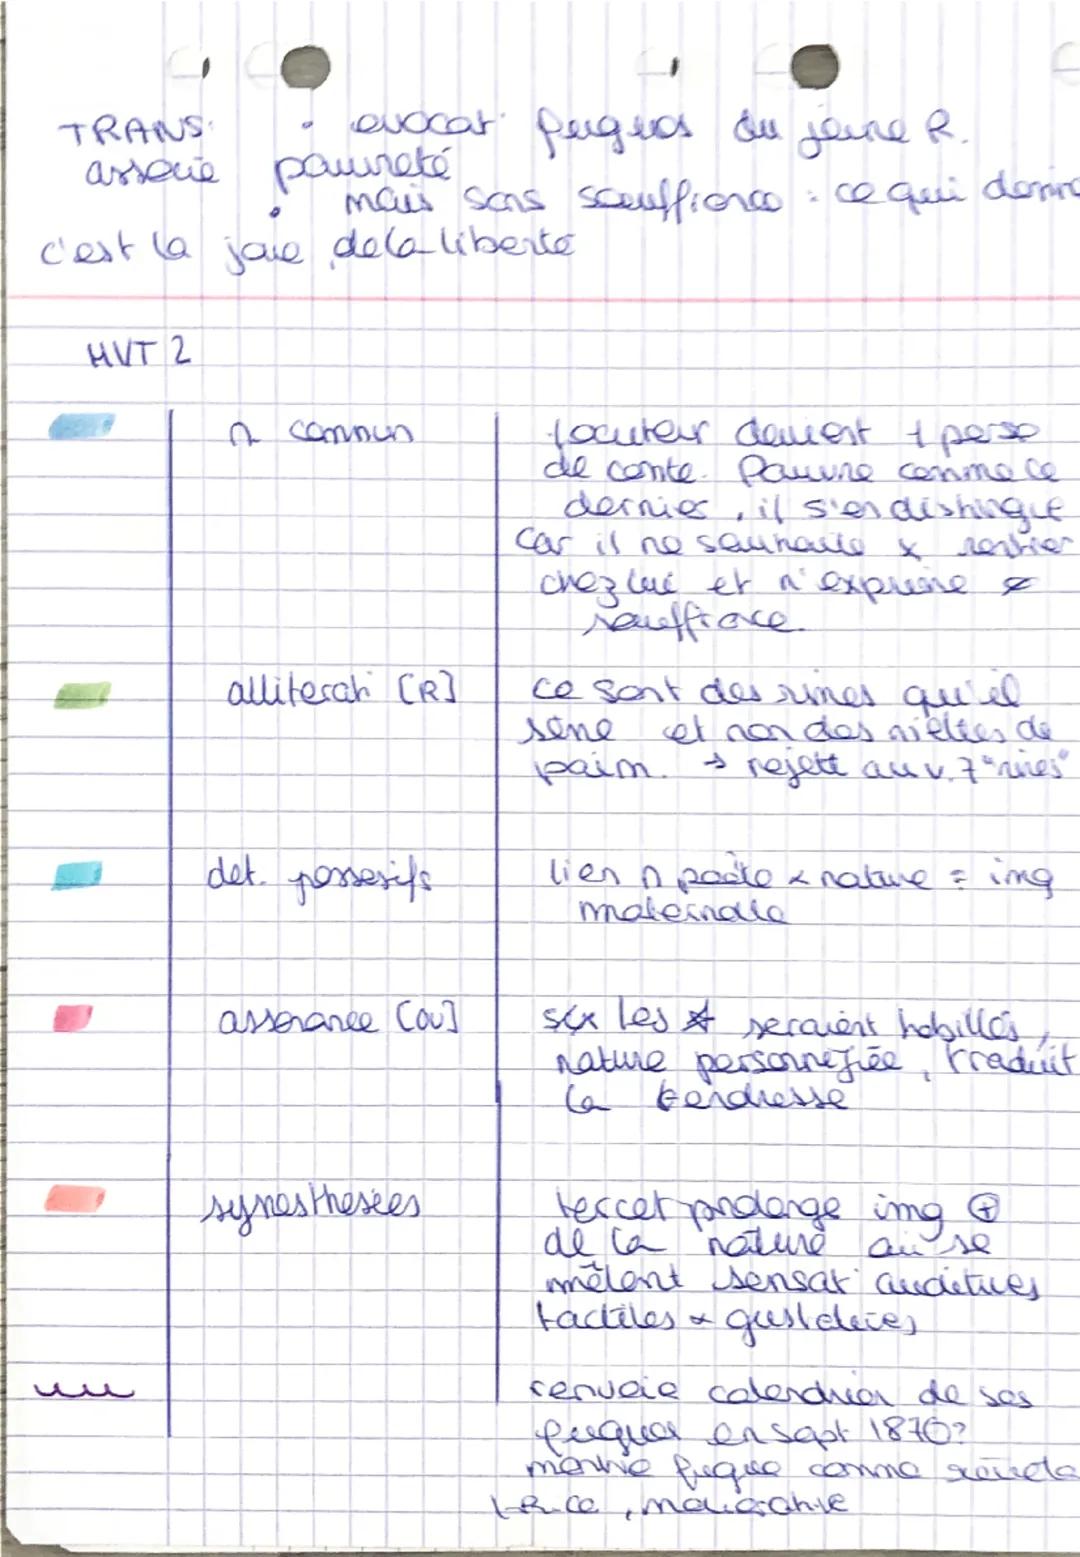 TRANS: • evocat° fugues du jeune R.
associe pauvreté
• mais sans souffrance : ce qui domine
c'est la joie de la liberté
MVT 2
n commun
locuteur devient 1 perso
de conte. Pauvre comme ce
dernier, il s'en distingue
car il ne souhaite x rentrer
chez lui et n'exprime
souffrance.
alliterat° [R]
ce sont des rimes qu'il
sème et non des miettes de
pain. → rejett au v. 7 "rimes"
det. possessifs
lien n poète x nature = img
maternelle
assonance [ou]
les ☆ seraient habillés,
nature personnefiée, traduit
la tendresse
synesthesies
tercet prolonge img ⊕
de la nature où se
mêlent sensat° auditives
tactiles x gustatives
renvoie calendrier de ses
fugues en sept 1870?
montre fugue comme